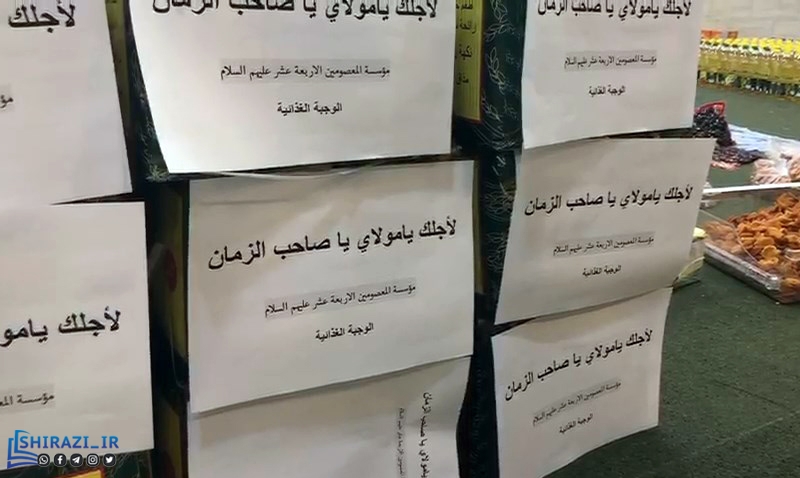 لأجلك
مؤسسة
لأجلك يامولاي يا صاحب الزمان
مؤسسة المعصومين الاربعة عشر عليهم السلام
الوجبة الغذائية
لأجلك يامولاي يا صاحب الزمان
مؤسسة المعصومين الاربعة عشر عليهم السلام
الوجبة الغذائية
لأجلك يامولاي يا صاحب الزمان
مؤسسة المعصومين الاربعة عشر عليهم السلام
الوجبة الغذائية
لأجلك يامولاي يا صاحب الزمان
مؤسسة المعصومين الاربعة عشر عليهم السلام
الوجبة الغذائية
لأجلك يامو
مؤسسة المع
لأجلك يامولاي يا صاحب الزمان
مؤسسة المعصومين الاربعة عشر عليهم السلام
الوجبة الغذائية
يامولاي يا صاحب الزمان
SHIRAZI_IR